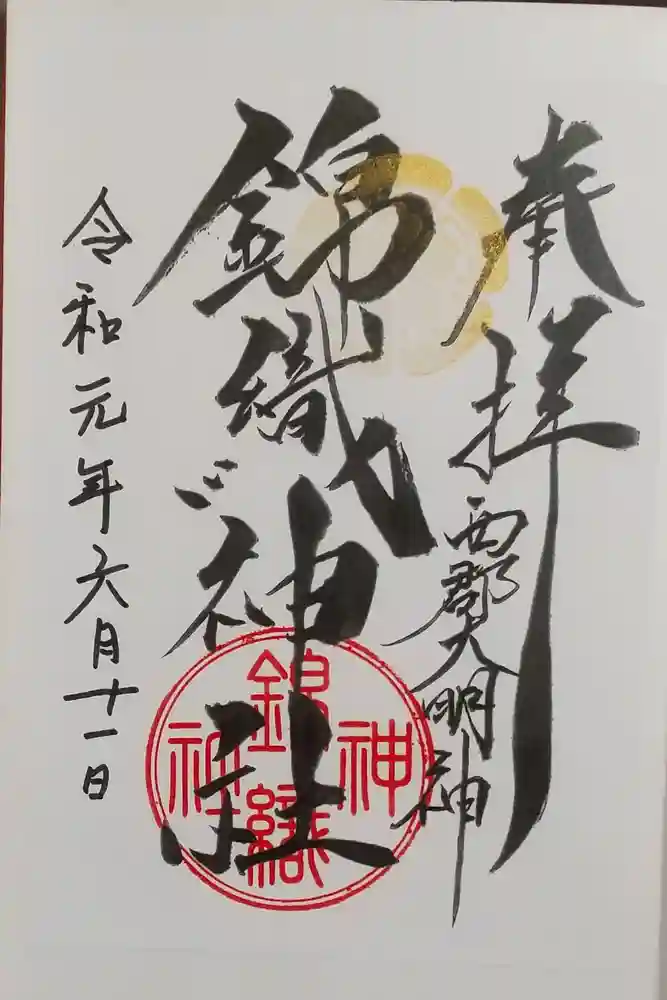 奉拝
西郡大明神
錦織神社
錦織神社
令和元年六月十一日